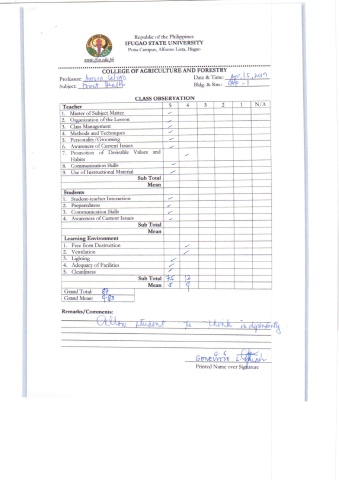 Republic of the Philippines
IFUGAO STATE UNIVERSITY
Potia Campus, Alfonso Lista, Ifugao
www.ifsu.edu.ph
COLLEGE OF AGRICULTURE AND FORESTRY
Professor: Date & Time: Apr. 15,
Subject: Bldg & Rm:
CLASS OBSERVATION
Teacher 5 4 3 2 1 N/A
1. Master of Subject Matter ✓
2. Organization of the Lesson ✓
3. Class Management ✓
4. Methods and Techniques ✓
5. Personality/Grooming ✓
6. Awareness of Current Issues ✓
7. Promotion of Desirable Values and Habits ✓
8. Communication Skills ✓
9. Use of Instructional Material ✓
Sub Total
Mean
Students
1. Student-teacher Interaction ✓
2. Preparedness ✓
3. Communication Skills ✓
4. Awareness of Current Issues ✓
Sub Total
Mean
Learning Environment
1. Free from Destruction ✓
2. Ventilation ✓
3. Lighting ✓
4. Adequacy of Facilities ✓
5. Cleanliness ✓
Sub Total 75 12
Mean 5 4
Grand Total: 87
Grand Mean: 4.83
Remarks/Comments:
Allow student to think independently
Printed Name over Signature